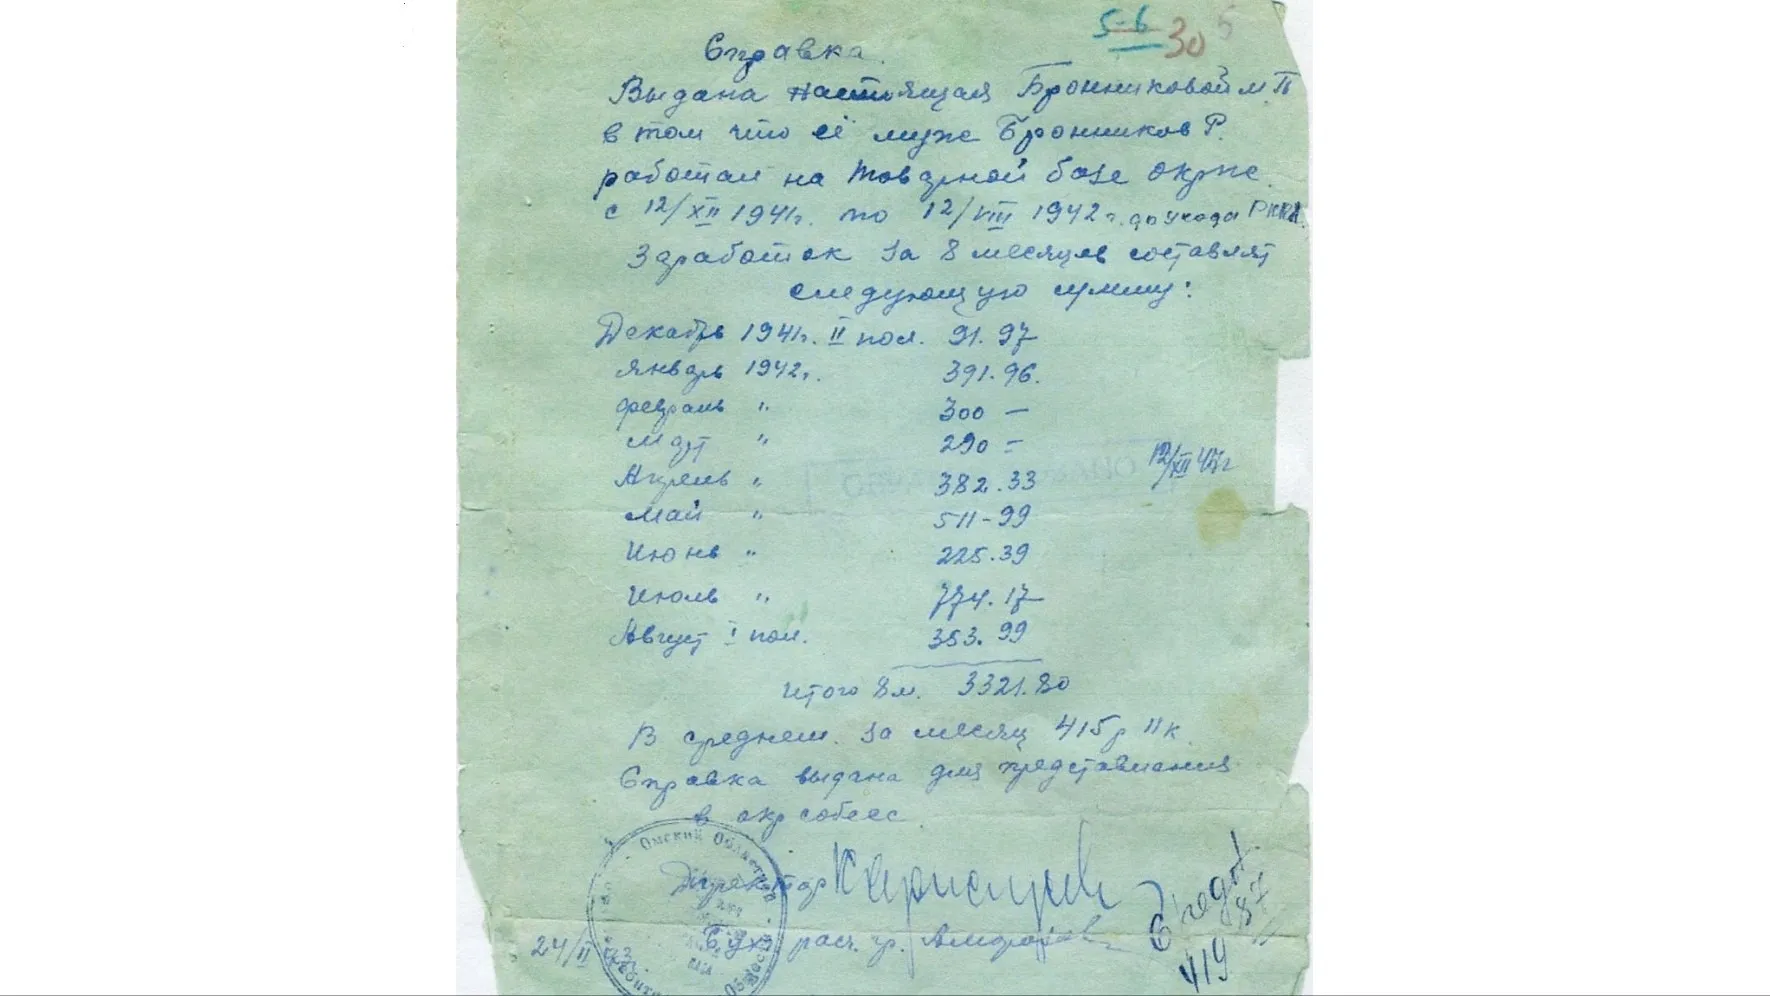 5-6 30 5
Справка.
Выдана настоящая Бронниковой М П
в том что её муже Бронников Р.
работал на товарной базе окрпс.
с 12/XII 1941г. по 12/VIII 1942г. до ухода РККА.
Заработок за 8 месяцев составлят
следующую сумму:
Декабрь 1941г. II пол. 91.97
Январь 1942г. 391.96.
февраль " 300 —
Март " 290 =
Апрель " 382.33
12/XII 42г
Май " 511-99
Июнь " 225.39
Июль " 774.17
Август I пол. 353.99
Итого 8 м. 3321.80
В среднем за месяц 415 р 11 к
Справка выдана для представления
в окр собес.
Омский Област
Директор
24/II Бух расч. гр.
419